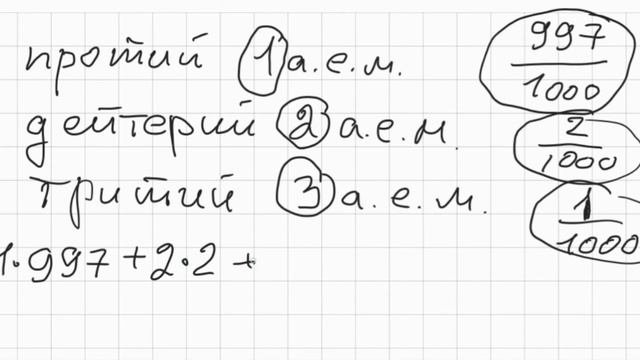 протий 1 а.е.м. 997/1000
дейтерий 2 а.е.м. 2/1000
тритий 3 а.е.м. 1/1000
1·997+2·2+